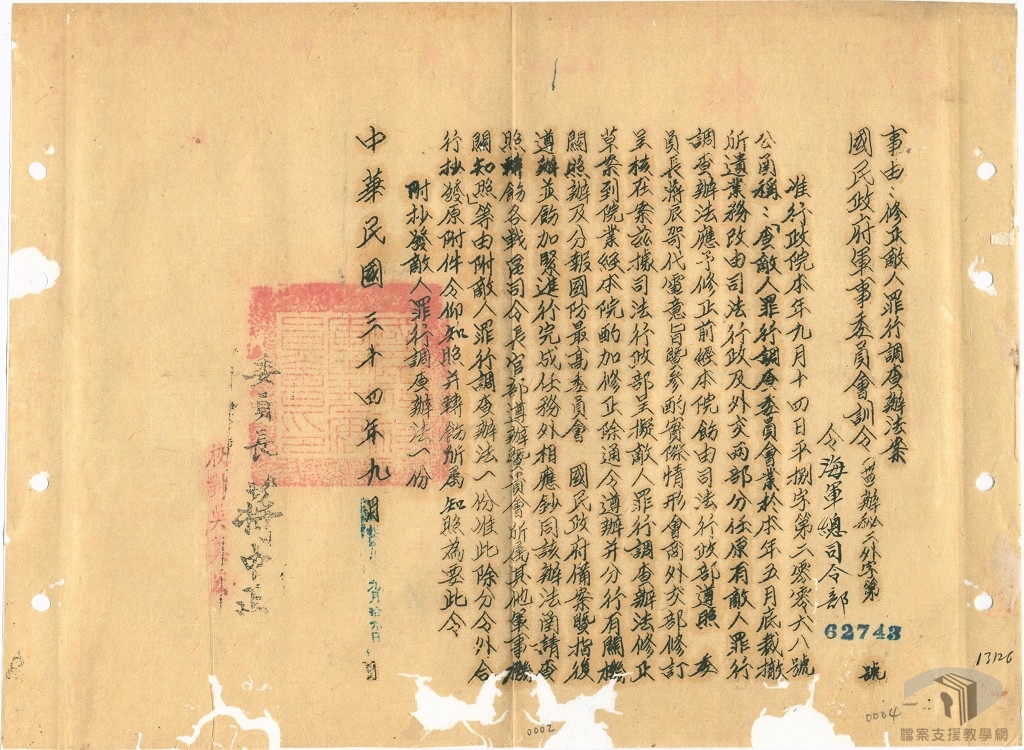 事由：修正敵人罪行調查辦法案
國民政府軍事委員會訓令
辦秘二外字第
62743
號
令海軍總司令部
准行政院本年九月十四日平捌字第二零零六八號
公函稱：「查敵人罪行調查委員會業於本年五月底裁撤
所遺業務改由司法行政及外交兩部分任原有敵人罪行
調查辦法應予修正前經本院飭由司法行政部遵照 委
員長蔣辰哿代電意旨暨參酌實際情形會商外交部修訂
呈核在案茲據司法行政部呈擬敵人罪行調查辦法修正
草案到院業經本院酌加修正除通令遵辦并分行有關機
關照辦及分報國防最高委員會 國民政府備案暨指復
遵辦並飭加緊進行完成任務外相應鈔同該辦法函請查
照轉飭各戰區司令長官部遵辦暨貴會所屬其他軍事機
關知照」等由附敵人罪行調查辦法一份准此除分令外合
行抄發原附件令仰知照并轉飭所屬知照為要此令
附抄發敵人罪行調查辦法一份
中華民國三十四年九月
九月拾九日
委員長 蔣中正
校對吳
13126
0004
0002
檔案支援教學網